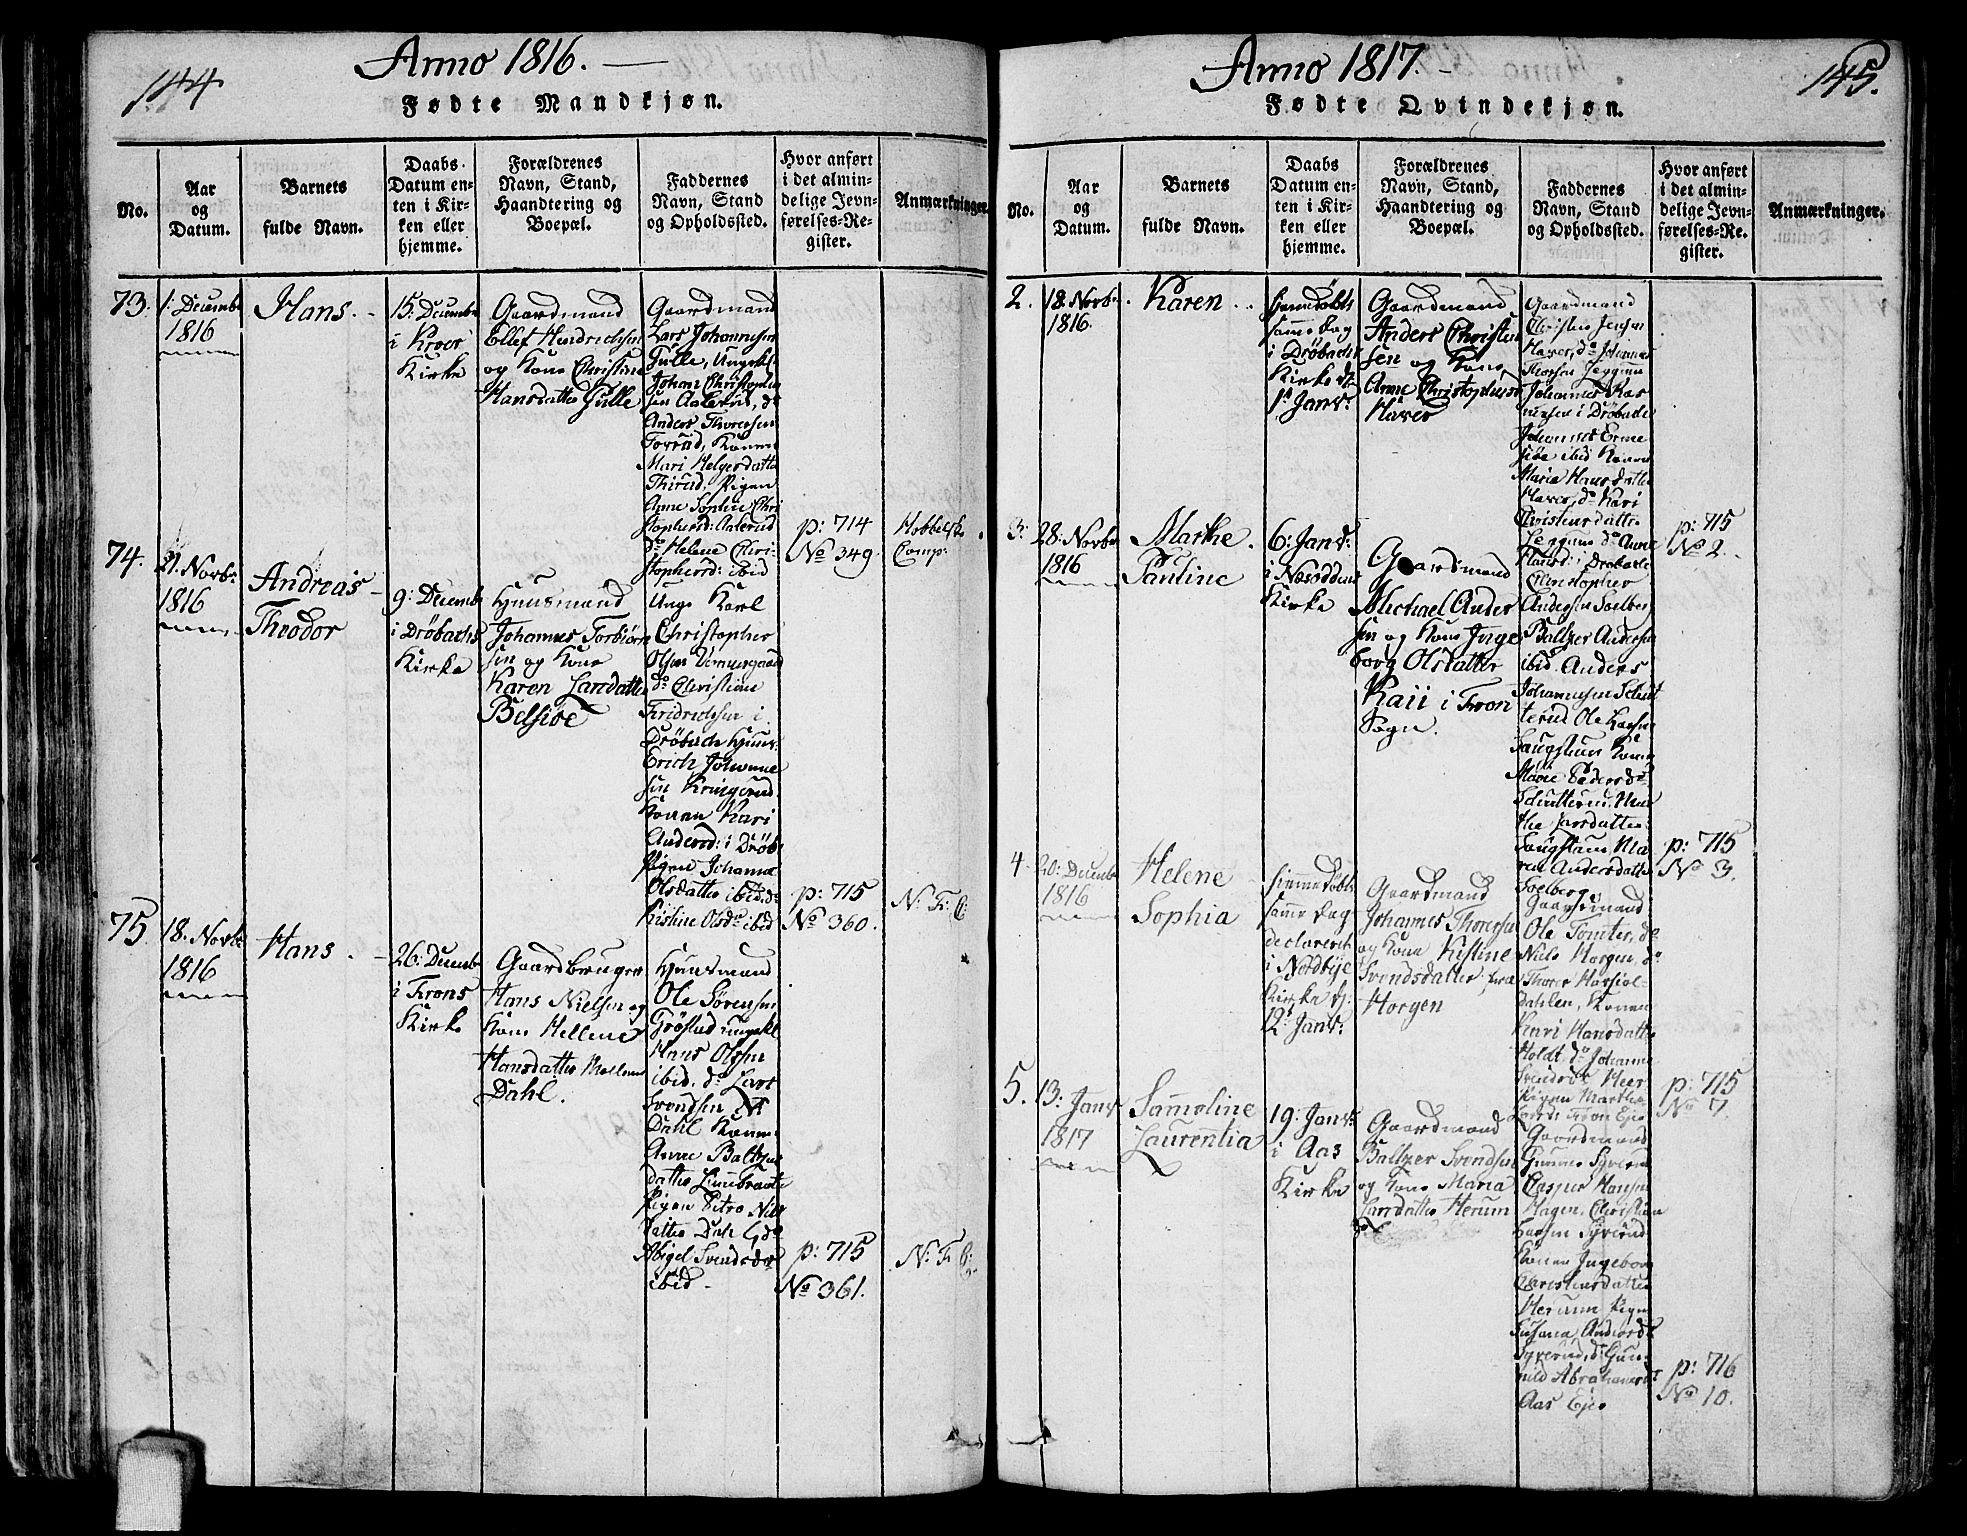 144
Anno 1816.
Fødte Mandkjøn.
No.
Aar
og
Datum.
Barnets
fulde Navn.
Daabs-
Datum en-
ten i Kir-
ken eller
hjemme.
Forældrenes
Navn, Stand,
Haandtering og
Boepæl.
Faddernes
Navn, Stand
og Opholdssted.
Hvor anført
i det almin-
delige Jevn-
førelses-Re-
gister.
Anmærkninger.
73.
1: Decembr
1816
Hans.
15: Decembr
i Kroer
Kirke
Gaardmand
Ellef Hendrichsen
og Kone Christine
Hansdatter Gulle
Gaardmand
Lars Johannesen
Gulle, Ungekl
Johan Christophe
sen Aalerud, do
Anders Thoresen
Torrud, Konen
Mari Helgesdatte
Thirud, Pigen
Anne Sophie Chri
stophersd: Aalerud
do Helene Chri-
stophersd: ibid
p: 714
No 349.
Comp:
74.
21. Novbr
1816
Andreas
Theodor
9: Decemb
i Drøbachs
Kirke
Huusmand
Johannes Torbiørn
sen og Kone
Karen Larsdatter
Belsiøe
Unge Karl
Christopher
Olsen
do Christian
Fridrichsen i
Drøbach Huus-
Erich Johanne
sen Kringerud
Konen Kari
Andersd: i Drøb
Pigen Johanne
Olsdatter ibid, do
Kistine Olsdr ibid
p: 715
No 360.
N: F: C:
75.
18. Novbr
1816
Hans
26: Decemb
i Frons
Kirke
Gaardbruger
Hans Nielsen og
Kone Hellene
Hansdatter Mellem
Dahl.
Huusmand
Ole Sørensen
Grøslud ungekl
Hans Olssen
ibid. do Lars
Svendsen
Dahl Konen
Anne Baltzer
datter
Pigen Petro Nils
datter Dahl, do
Abigel Svendsdr
ibid.
p: 715
No 361.
N: F C:
145.
Anno 1817.
Fødte Qvindekjøn.
No.
Aar
og
Datum.
Barnets
fulde Navn.
Daabs
Datum en-
ten i Kir-
ken eller
hjemme.
Forældrenes
Navn, Stand,
Haandtering og
Boepæl.
Faddernes
Navn, Stand
og Opholdssted.
Hvor anført
i det almin-
delige Jevn-
førelses-Re-
gister.
Anmærkninger.
2.
18. Novbr
1816.
Karen
hjemmedøbt
samme dag
i Drøbachs
Kirke d:
1s Janv:
Gaardmand
Anders Christen
sen og Kone
Anne Christophersd
Haver
Gaardmand
Christen Jensen
Haver, do Johannes
Thorsen Leggum
Johannes Ras
musen i Drøbach
Johannes Erme
siøe ibid Konen
Maria Hansdatter
Haver, do Kari
Christensdatter
Leggum do Anne
i Drøbach
p: 715
No 2.
3:
28: Novbr
1816
Marthe
Pauline
6: Janv:
i Næsoddens
Kirke
Gaardmand
Michael Ander
sen og Kone Inge
borg Olsdatter
Kaii i Fron
Sogn.
Christopher
Andersen Solberg
Baltzer Andersen
ibid. Anders
Johannesen Schut
terud Ole Larsen
Saugstuen Konen
Marie Pedersdr
Schutterud, Mar
the Larsdatter
Saugstuen Ma
ren Andersdatter
Soelberg
p: 715
No 3.
4
20: Decemb
1816
Helene
Sophia
hjemmedøbt
samme dag
declareret
i Nordbye
Kirke d:
12: Janv:
Gaardmand
Johannes Thoresen
og Kone Kistine
Svendsdatter
Horgen
Gaardmand
Ole Tomter, do
Niels Horgen, do
Thore Harsiol-
dahlen, Konen
Kari Hansdatter
Holdt, do Johanne
Svendsdr Heer
Pigen Marthe
Larsd: Fron Eje
p: 715
No 7
5.
13: Janv
1817
Samoline
Laurentia
19: Janv:
i Aas
Kirke
Gaardmand
Baltzer Svendsen
og Kone Maria
Larsdatter Herum
Gaardmand
Gunner Syverud
Casper Hansen
Hagen, Christian
Larsen Syverud
Konen Ingeborg
Christensdatter
Herum Pigen
Susana Andersd
Syverud, do Gun-
hild Abrahamsdr
Aas Eje
p: 716
No 10.